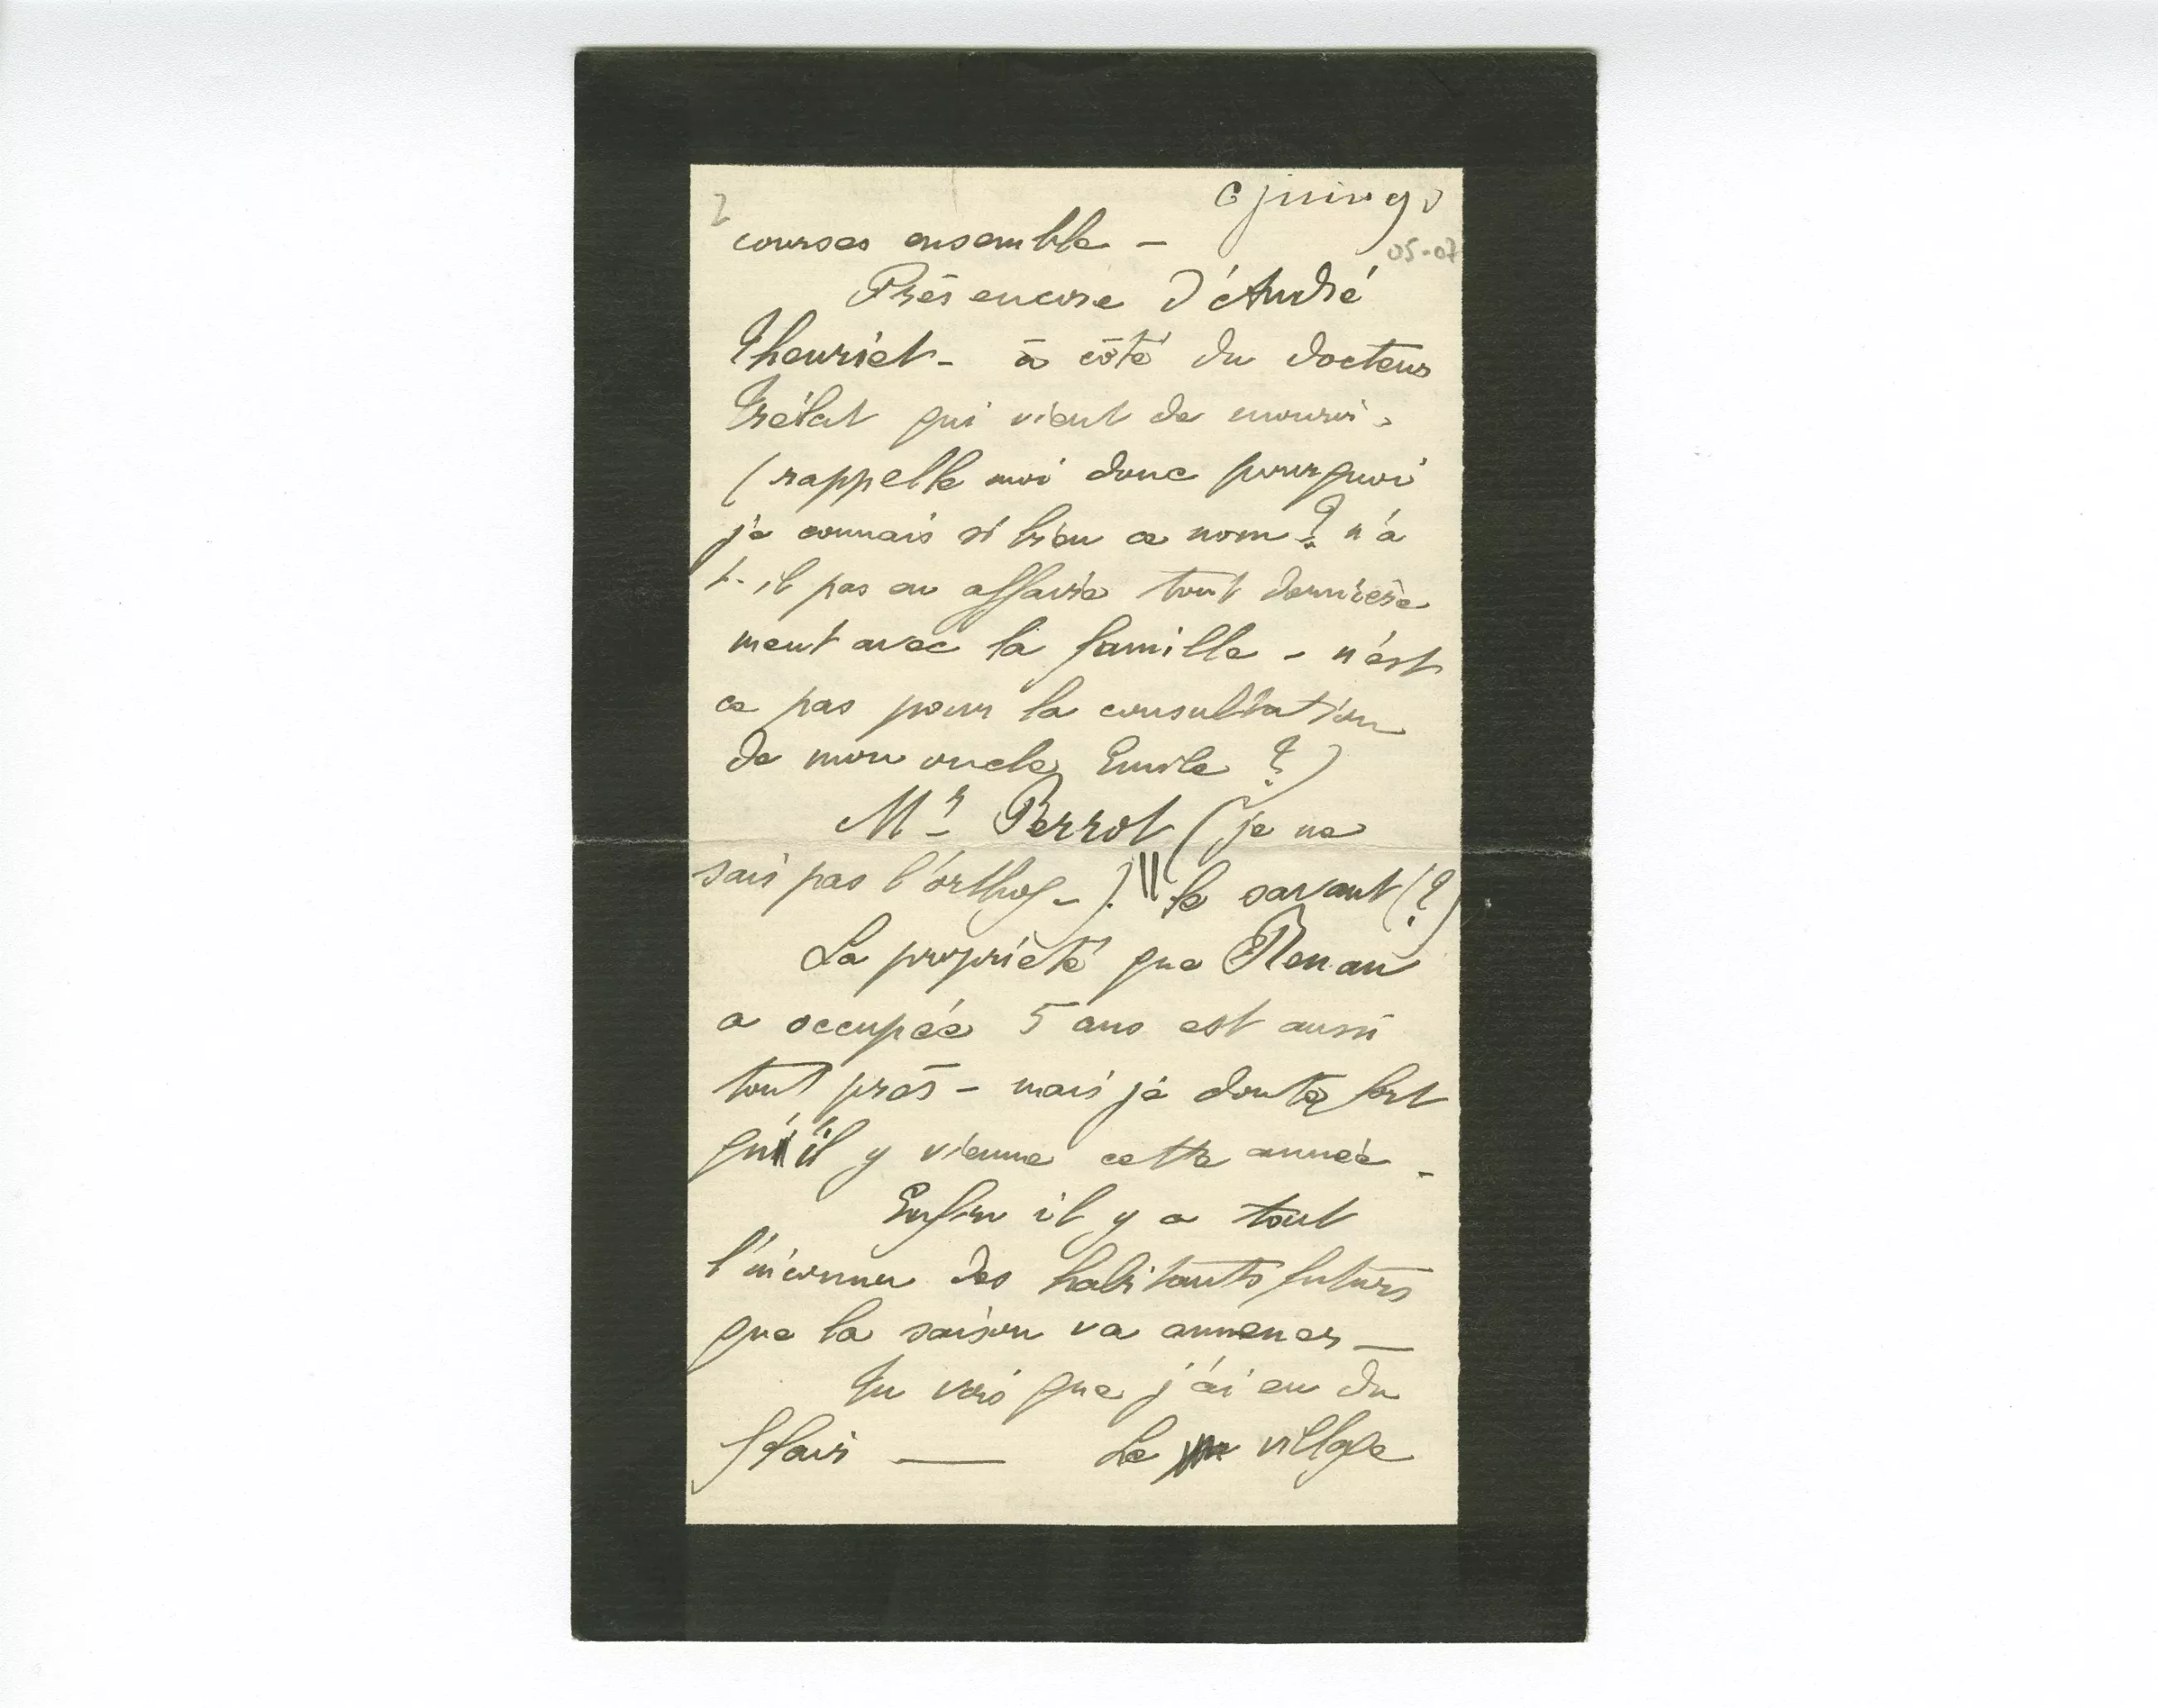 2
6 juin 90
05-07
courses ensemble –
Près encore d'André
Theuriet – à côté du docteur
Trélat qui vient de mourir.
(rappelle moi donc pourquoi
je connais si bien ce nom? n'a
t-il pas eu affaire tout dernière
ment avec la famille – n'est
ce pas pour la consultation
de mon oncle Emile ?)
Mr Perrot (je ne
sais pas l'orthog –). le savant (?)
La propriété que Renan
a occupée 5 ans est aussi
tout près – mais je doute fort
qu'il y vienne cette année –
Enfin il y a tout
l'inconnu des habitants futurs
que la saison va amener —
Tu vois que j'ai eu du
flair —— Le village